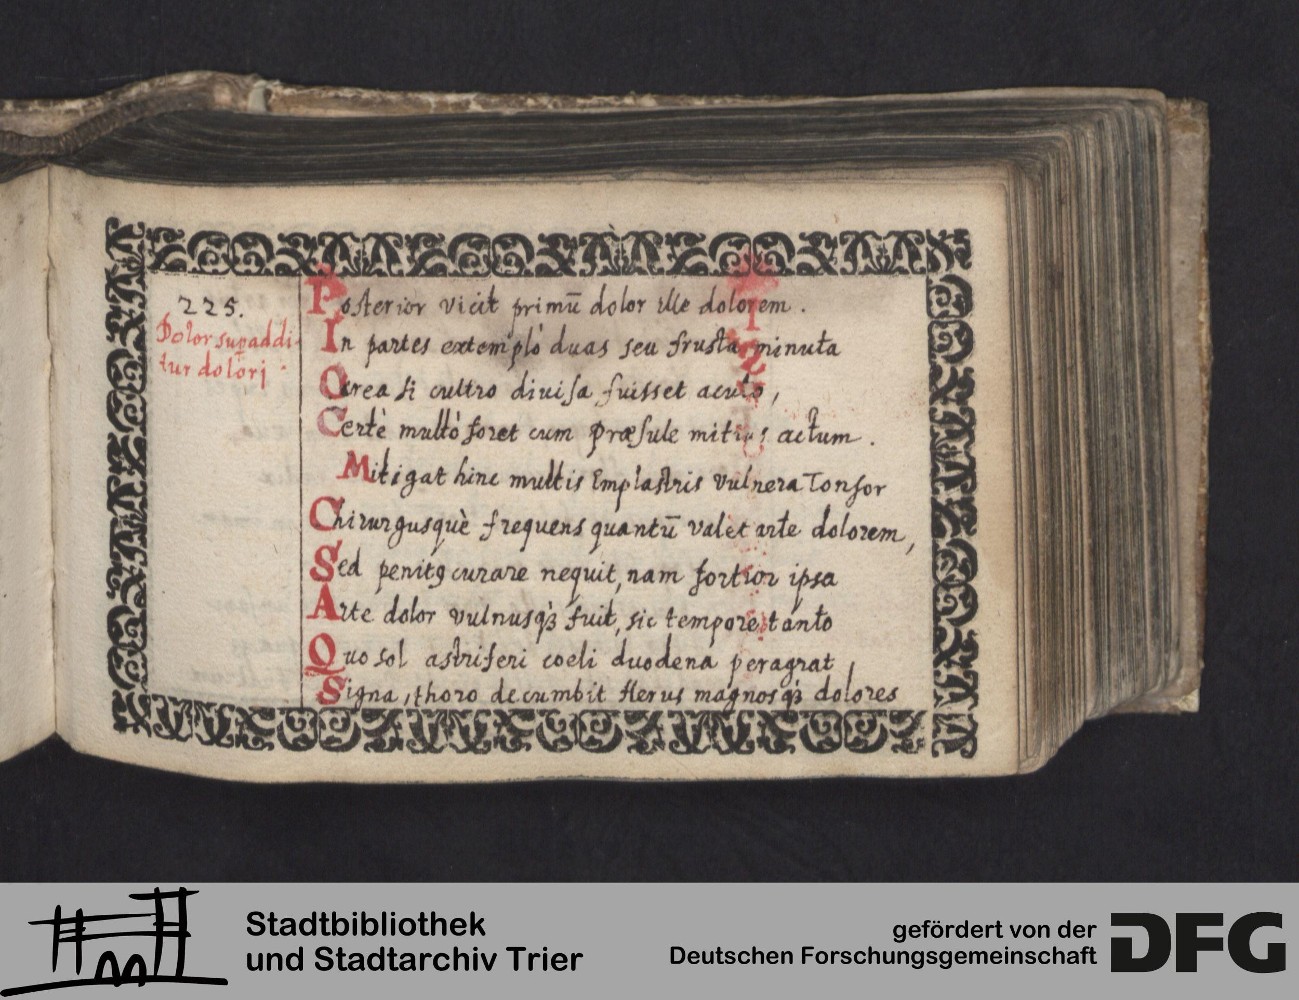 225.
Dolor supaddi-
tur dolori.
Posterior vicit primū dolor ille dolorem.
In partes extemplò duas seu frusta minuta
Ocrea si cultro diuisa fuisset acuto,
Certè multò foret cum Præsule mitius actum.
Mitigat hinc multis Emplastris vulnera Tonsor
Chirurgusquè frequens quantū valet arte dolorem,
Sed penitꝰ curare nequit, nam fortior ipsa
Arte dolor vulnusqꝫ fuit, sic tempore tanto
Quo sol astriferi coeli duodena peragrat
Signa, thoro decumbit Herus magnosqꝫ dolores
Stadtbibliothek
und Stadtarchiv Trier
gefördert von der
Deutschen Forschungsgemeinschaft
DFG